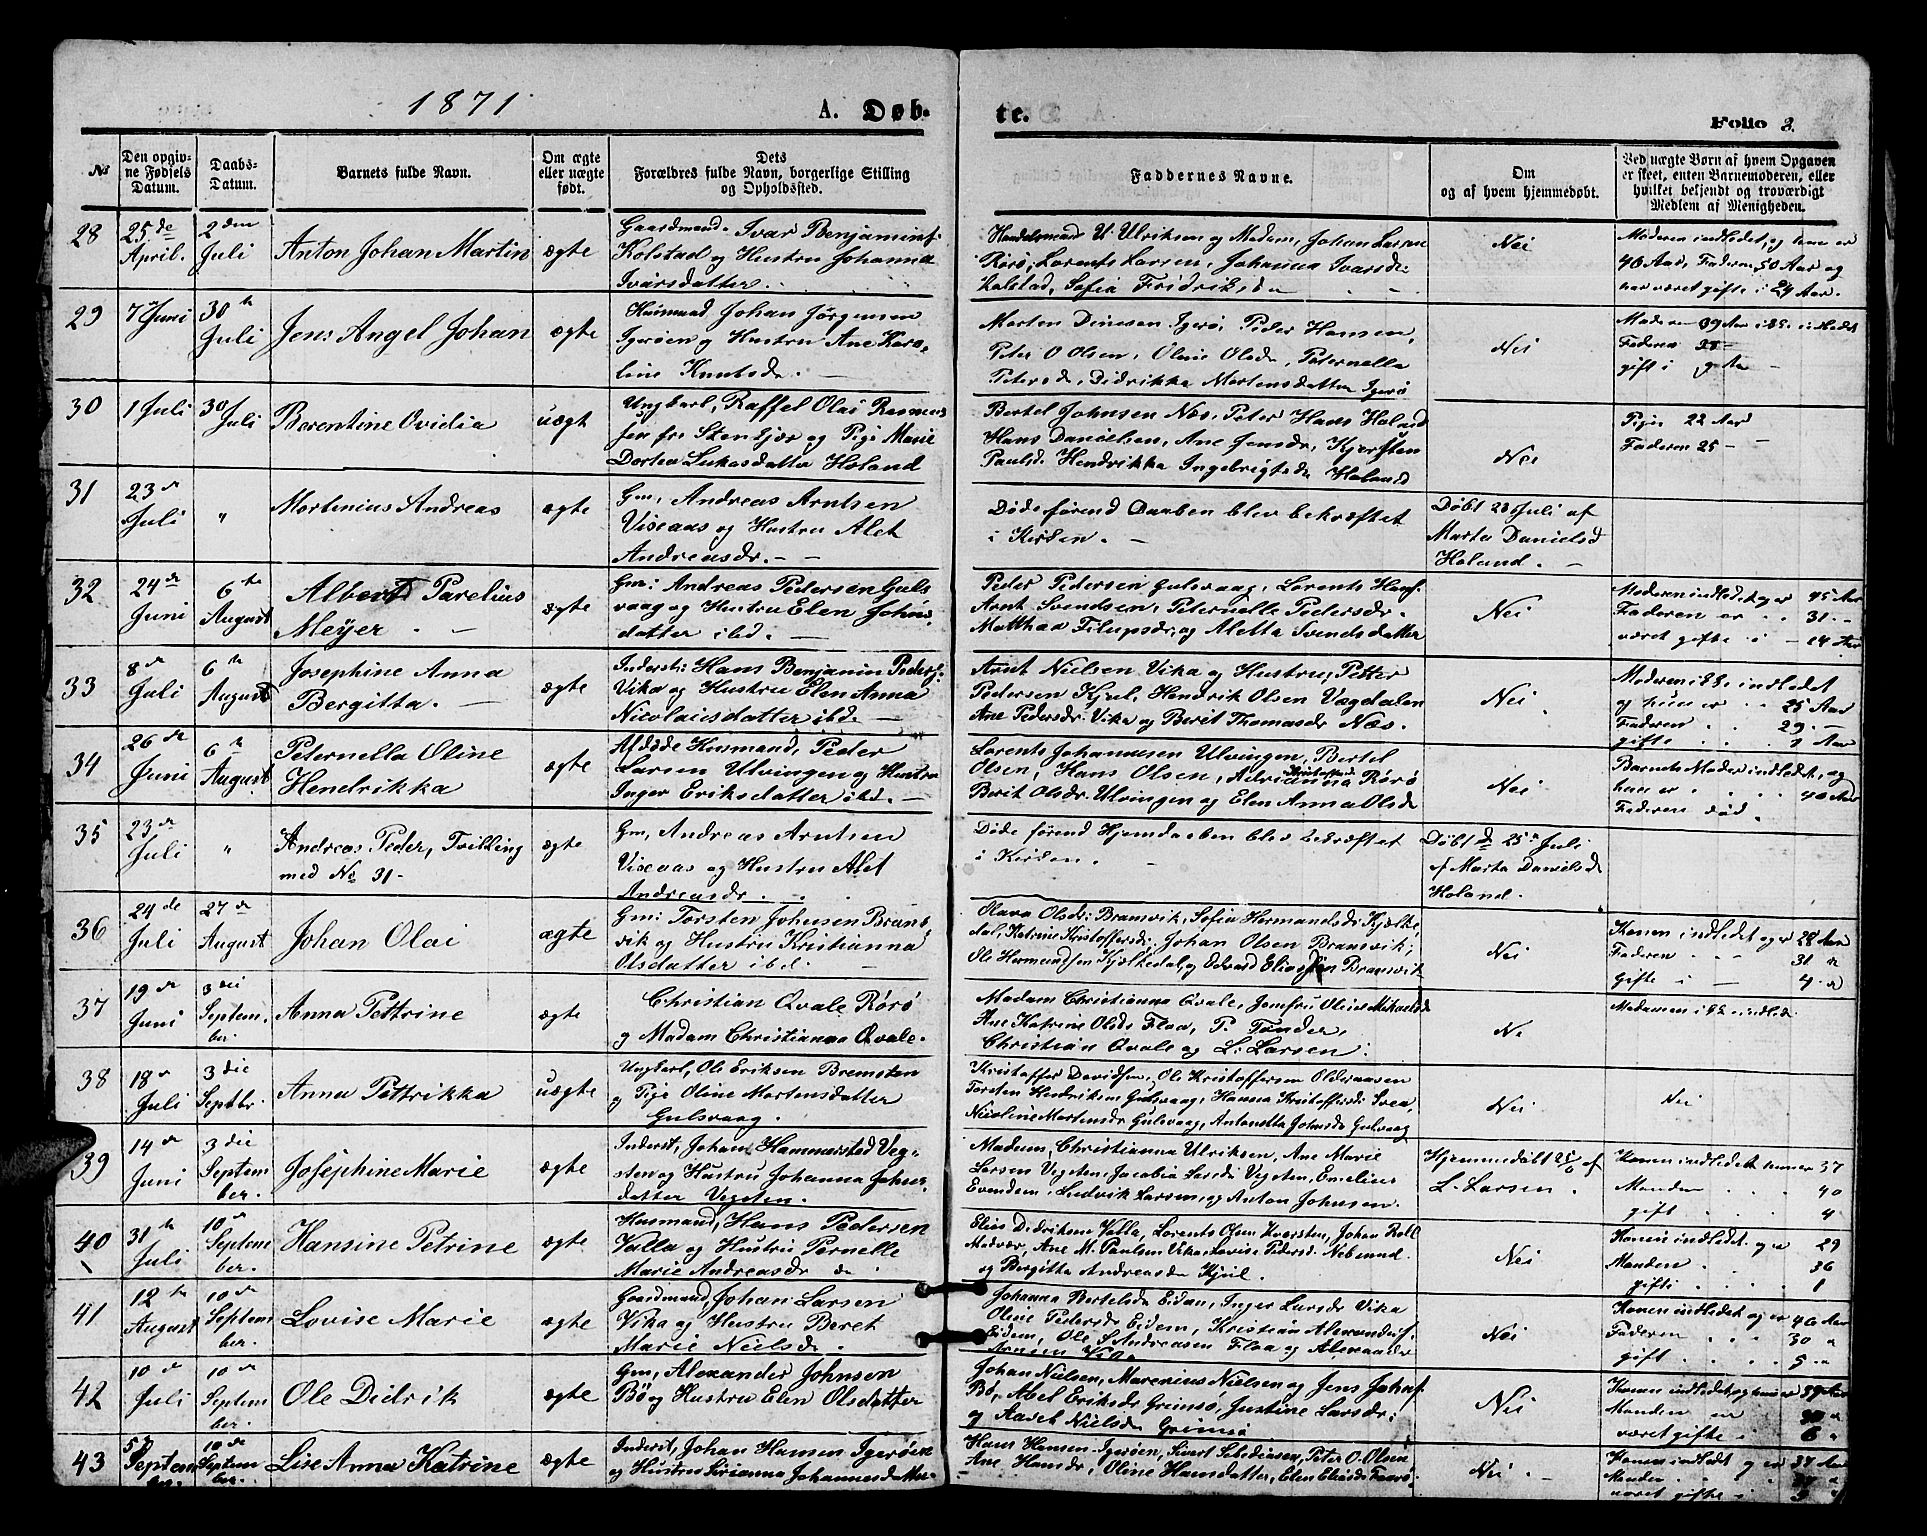 1871
A. Døb-
te.
Folio 3.
No
Den opgiv-
ne Fødsels
Datum.
Daabs-
Datum.
Barnets fulde Navn.
Om ægte
eller uægte
født.
Dets
Forældres fulde Navn, borgerlige Stilling
og Opholdssted.
Faddernes Navne.
Om
og af hvem hjemmedøbt.
Ved uægte Børn af hvem Opgaven
er skeet, enten Barnemoderen, eller
hvilket bekjendt og troværdigt
Medlem af Menigheden.
28
25de
April.
2den
Juli
Anton Johan Martin
ægte
Gaardmand Ivar Benjamins.
Kolstad og Hustru Johanna
Ivarsdatter.
Handelsmand U. Ulriksen og Madam, Johan Larsen
Rørø, Lorents Larsen, Johanna Ivarsdr
Kolstad, Sofia Fridriksda
Nei
Moderen indledet, og hun er
40 Aar, Faderen 50 Aar og
har været gifte i 24 Aar.
29
7 Juni
30te
Juli
Jens Angel Johan
ægte
Husmand Johan Jørgensen
Igerøen og Hustru Ane Karo-
line Knutsdr. —
Morten Dinesen Igerø, Peder Hansen,
Peter O Olsen, Oline Olsdr, Peternella
Petersdr, Didrikka Mortensdatter Igerø
Nei
Moderen 39 Aar indledet
Faderen 38 —
gift i 9 Aar
30
1 Juli
30 Juli
Berentine Ovidia
uægt
Ungkarl, Raffel Olai Rasmus
sen fra Stenkjær og Pige Marie
Dortea Lukasdatter Holand
Bertel Johnsen Næs, Peter Hans Holand
Hans Danielsen, Ane Jensdr, Kjersten
Paulsd. Hendrikka Ingebrigtsdr Holand
Nei
Pigen 22 Aar
Faderen 25 —
31
23de
Juli
"
Mortinius Andreas
ægte
Gm, Andreas Arntsen
Viseaas og Hustru Alet
Andreasdr. — —
Døde førend Daaben blev bekræftet
i Kirken. —
Døbt 23 Juli af
Marta Danielsd
Holand. —
32
24de
Juni
6te
August
Albert Parelius
Meyer. —
ægte
Gm: Andreas Pedersen Guls
vaag og Hustru Elen Johns
datter ibd. —
Peder Pedersen Gulsvaag, Lorents Hans.
Arnt Svendsen, Peternelle Pedersdr.
Matthea Filupsdr, og Aletta Svendsdatter
Nei
Moderen indledet, og er 45 Aar
Faderen er . . 31. —
været gifte i — 14 Aar
33
8de
Juli
6te
August
Josephine Anna
Bergitta. —
ægte
Inderst: Hans Benjamin Peders.
Vika og Hustru Elen Anna
Nicolaisdatter ibd. —
Arnt Nielsen Vika og Hustru, Petter
Pedersen Kjul, Hendrik Olsen Vægdalen
Ane Pedersdr. Vika og Berit Thomasdr Næs.
Nei
Moderen indledet
og hun er . . 25 Aar
Faderen . . 29. —
gifte . . . 1 Aar
34
26de
Juni
6te
August
Peternella Oline
Hendrikka
ægte
Afdøde Husmand, Peder
Larsen Ulvingen og Hustru
Inger Eriksdatter ibd. —
Lorents Johannesen Ulvingen, Bertel
Olsen, Hans Olsen, Adrianna Kristoffersd Rørø
Berit Olsdr. Ulvingen og Elen Anna Olsdr
Nei
Barnets Moder indledet, og
hun er . . . 40 Aar
Faderen død.
35
23de
Juli
"
Andreas Peder, Tvilling
med No 31 —
ægte
Gm, Andreas Arntsen
Viseaas og Hustru Alet
Andreasdr.
Døde førend Hjemdaaben blev bekræftet
i Kirken. —
Døbt d 25 Juli
af Marta Danielsdr
Holand.
36
24de
Juli
27de
August
Johan Olai
ægte
Gm: Torsten Johnsen Brans
vik og Hustru Kristianna
Olsdatter ibd. —
Olava Olsdr: Bransvik, Sofia Hermandsdr Kjølke
dal, Katrine Kristoffersdr, Johan Olsen Bransvik,
Ole Hermandsen Kjølkedal, og Edvard Eliassen Bransvik
Nei
Konen indledet og er 28 Aar
Faderen . . . 31 "
Gifte i — 4. "
37
19de
Juni
3die
Septem-
ber.
Anna Pettrine
ægte
Christian Qvale Rørø
og Madam Christianna Qvale.
Madam Christianna Qvale, Jomfru Oline Mikaelsd
Ane Katrine Olsdr Flaa, P. Tønder,
Christian Qvale og L. Larsen.
Ne
Madamen indledt
38
18de
Juli
3die
Septbr.
Anna Pettrikka
uægte
Ungkarl, Ole Eriksen Bremsten
og Pige Oline Mortensdatter
Gulsvaag.
Kristoffer Davidsen, Ole Kristoffersen Olderaasen
Torsten Hendriksen Gulsvaag, Hanna Kristoffersdr Svea,
Nicoline Mortensdr Gulsvaag, Antonetta Johnsdr Gulsvaag
Nei
Nei
39
14de
Juni
3die
Septem
ber.
Josephine Marie
ægte
Inderst, Johan Hammarsted Veg-
sten og Hustru Johanna Johns
datter Vegsten.
Madam, Christianna Ulriksen, Ane Marie
Larsen Vegsten, Jacobia Larsdr Vegsten, Emelius
Evendsen, Ludvik Larsen, og Anton Johnsen.
Hjemmedøbt 25/6 af
L. Larsen.
Konen indledet hun er 37
Manden . . . 40
gift . . . 4
40
31te
Juli
10de
Septem
ber.
Hansine Petrine
ægte
Husmand, Hans Pedersen
Valla og Hustru Pernelle
Marie Andreasdr do
Elias Didriksen Valla, Lorents Olsen Kvarsten, Johan Roll
Madvær, Ane M. Paulsen Vika, Lovise Pedersd. Nibunad
og Bergitta Andreasdr Kjul.
Nei
Konen indledet og er 29
Manden . . . 36
gifte . . . 1
41
12te
August
10de
Septem
ber.
Lovise Marie
ægte
Gaardmand, Johan Larsen
Vika og Hustru Beret
Marie Nielsdr.
Johanna Bertelsdr Eidem, Inger Larsdr Vika
Oline Pedersdr Eidem, Kristian Alexanders.
Eidem, Ole S Andreasen Flaa og Alexander
Nei
Konen indledet og er 46 Aar
Faderen . . . 30 "
gift . . . 5. "
42
10de
Juli
10de
Septem
ber.
Ole Didrik
ægte
Gm, Alexander Johnsen
Bø og Hustru Elen Olsdatter
Johan Nielsen, Marenius Nielsen og Jens Johns.
Bø, Abel Eriksdr Grimsø, Justine Larsdr:
og Aaret Nielsdr Grimsø
Nei
Konen indledet, og hun er 39 Aar
Manden er 30 "
været gifte i. 6 "
43
5te
Septem
10de
Septem
ber.
Lise Anna Katrine
ægte
Inderst, Johan Hansen Igerøen
og Hustru Sirianna Johannesdatter
Hans Hansen Igerøen, Sivert Solediensen, Peter O. Olsen
Ane Hansdr, Oline Hansdatter, Elen Eliasdr
Nei
Konen indledt og er 34 Aar
Manden
været gifte i